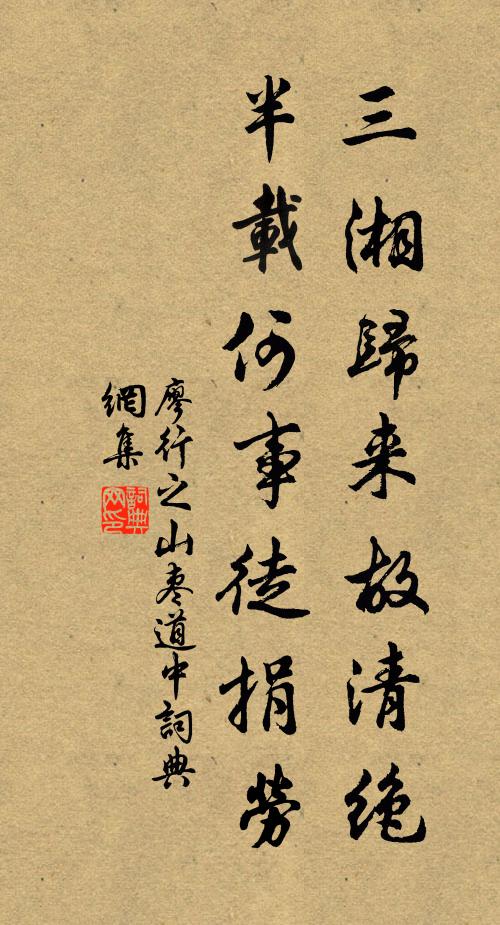 三湘歸来故清絶
半載何事徒捐勞
廖行之山枣道中詞典
網集
詞典
网印